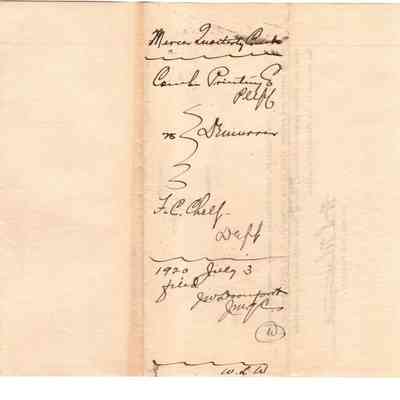 Mercer Quarterly Court
Comb Printing Co
Pltff
vs Demurrer
F. C. Chelf
Deff
1920 July 3
filed
J W Davenport
W
W. L. W